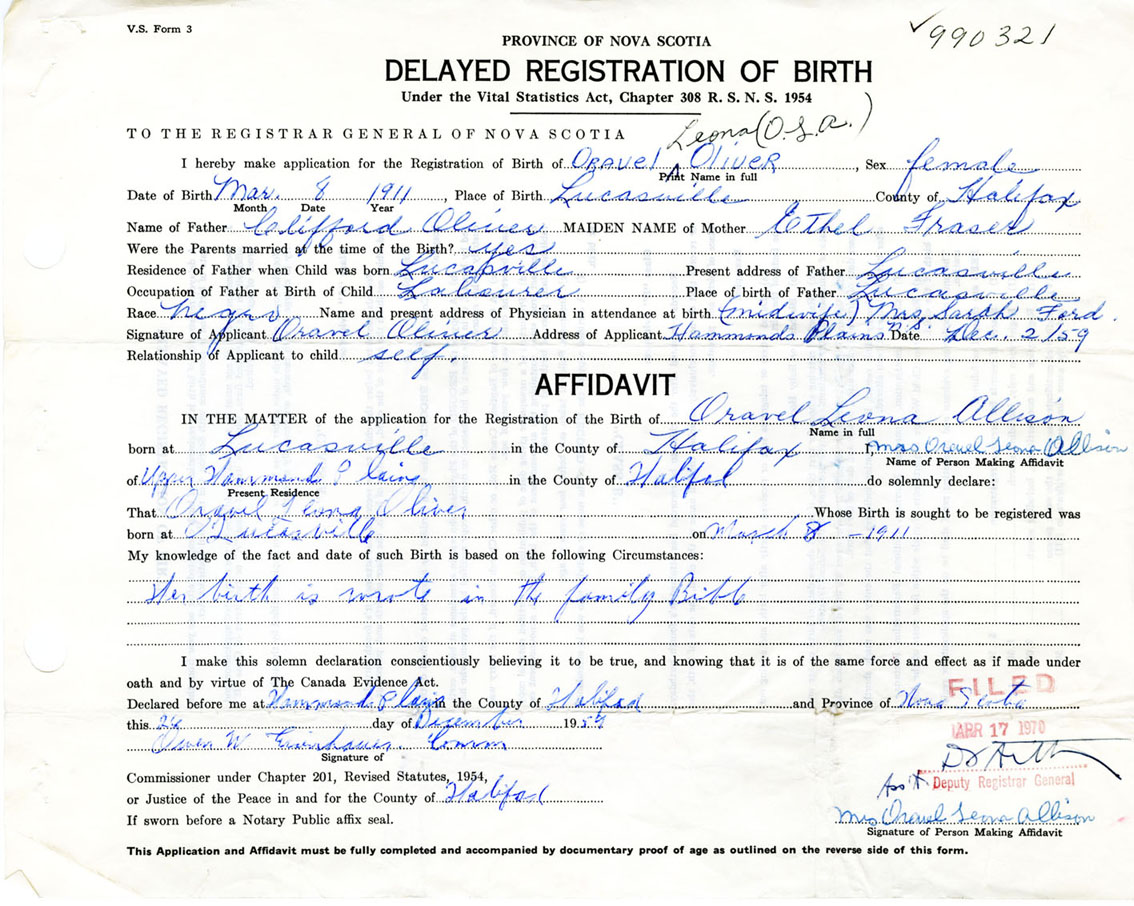 V.S. Form 3
✓990321
PROVINCE OF NOVA SCOTIA
DELAYED REGISTRATION OF BIRTH
Under the Vital Statistics Act, Chapter 308 R. S. N. S. 1954
TO THE REGISTRAR GENERAL OF NOVA SCOTIA
Leona (O.L.A.)
I hereby make application for the Registration of Birth of Oravel Oliver, Sex female
Print Name in full
Date of Birth Mar. 8 1911, Place of Birth Lucasville County of Halifax
Month Date Year
Name of Father Clifford Oliver MAIDEN NAME of Mother Ethel Fraser
Were the Parents married at the time of the Birth? yes
Residence of Father when Child was born Lucasville Present address of Father Lucasville
Occupation of Father at Birth of Child Labourer Place of birth of Father Lucasville
Race Negro Name and present address of Physician in attendance at birth (midwife) Mrs. Sarah Ford.
Signature of Applicant Oravel Oliver Address of Applicant Hammonds Plains N.S. Date Dec. 2/59
Relationship of Applicant to child self.
AFFIDAVIT
IN THE MATTER of the application for the Registration of the Birth of Oravel Leona Allison
Name in full
born at Lucasville in the County of Halifax I, Mrs Oravel Leona Allison
Name of Person Making Affidavit
of Upper Hammond Plains in the County of Halifax do solemnly declare:
Present Residence
That Oravel Leona Oliver Whose Birth is sought to be registered was
born at Lucasville on March 8 - 1911
My knowledge of the fact and date of such Birth is based on the following Circumstances:
Her birth is wrote in the family Bible
I make this solemn declaration conscientiously believing it to be true, and knowing that it is of the same force and effect as if made under
oath and by virtue of The Canada Evidence Act.
FILED
Declared before me at Hammond Plain in the County of Halifax and Province of Nova Scotia
this day of December 1959
APR 17 1970
Owen W. Eisenhauer. Comm
Signature of
Commissioner under Chapter 201, Revised Statutes, 1954,
Ass't Deputy Registrar General
or Justice of the Peace in and for the County of Halifax
Mrs Oravel Leona Allison
If sworn before a Notary Public affix seal.
Signature of Person Making Affidavit
This Application and Affidavit must be fully completed and accompanied by documentary proof of age as outlined on the reverse side of this form.